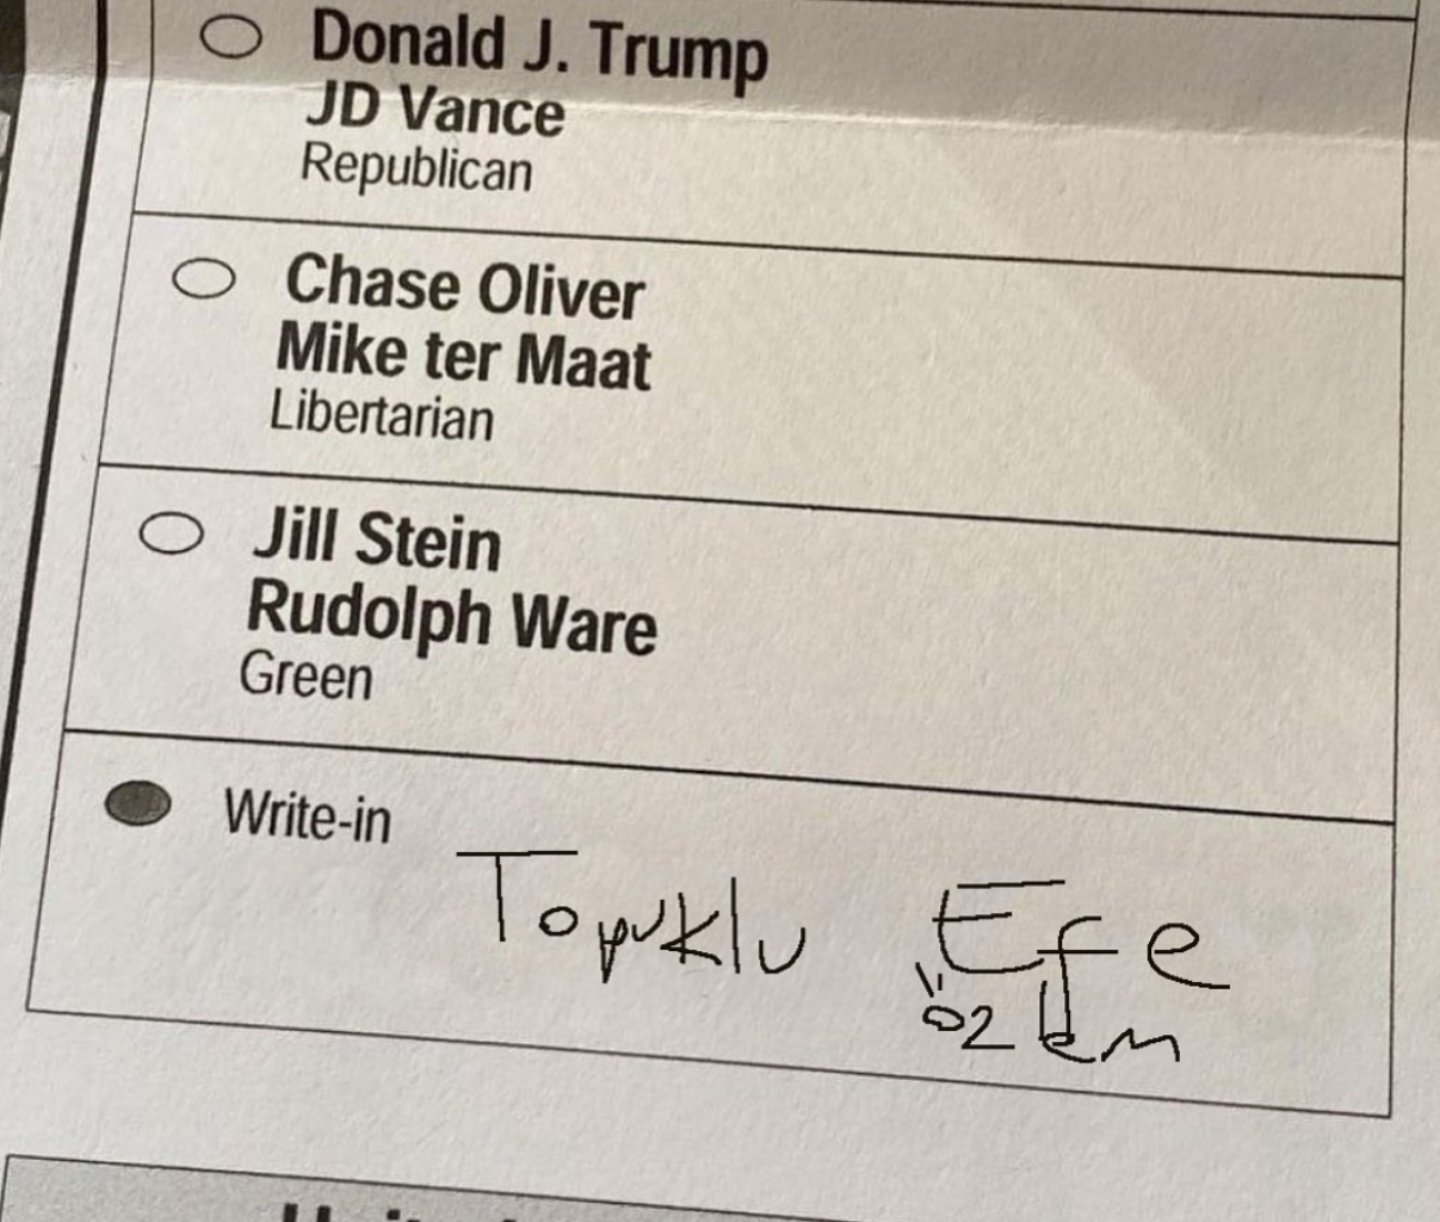 Donald J. Trump
JD Vance
Republican
Chase Oliver
Mike ter Maat
Libertarian
Jill Stein
Rudolph Ware
Green
Write-in
Topuklu Efe